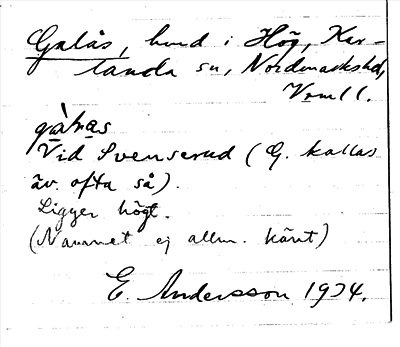 Galås, hmd i Hög, Kar-
landa sn, Nordmarkshd,
Vrml l.
gàlras
Vid Svenserud (G. kallas
äv. ofta så).
Ligger högt.
(Namnet ej allm. känt)
E. Andersson 1934.